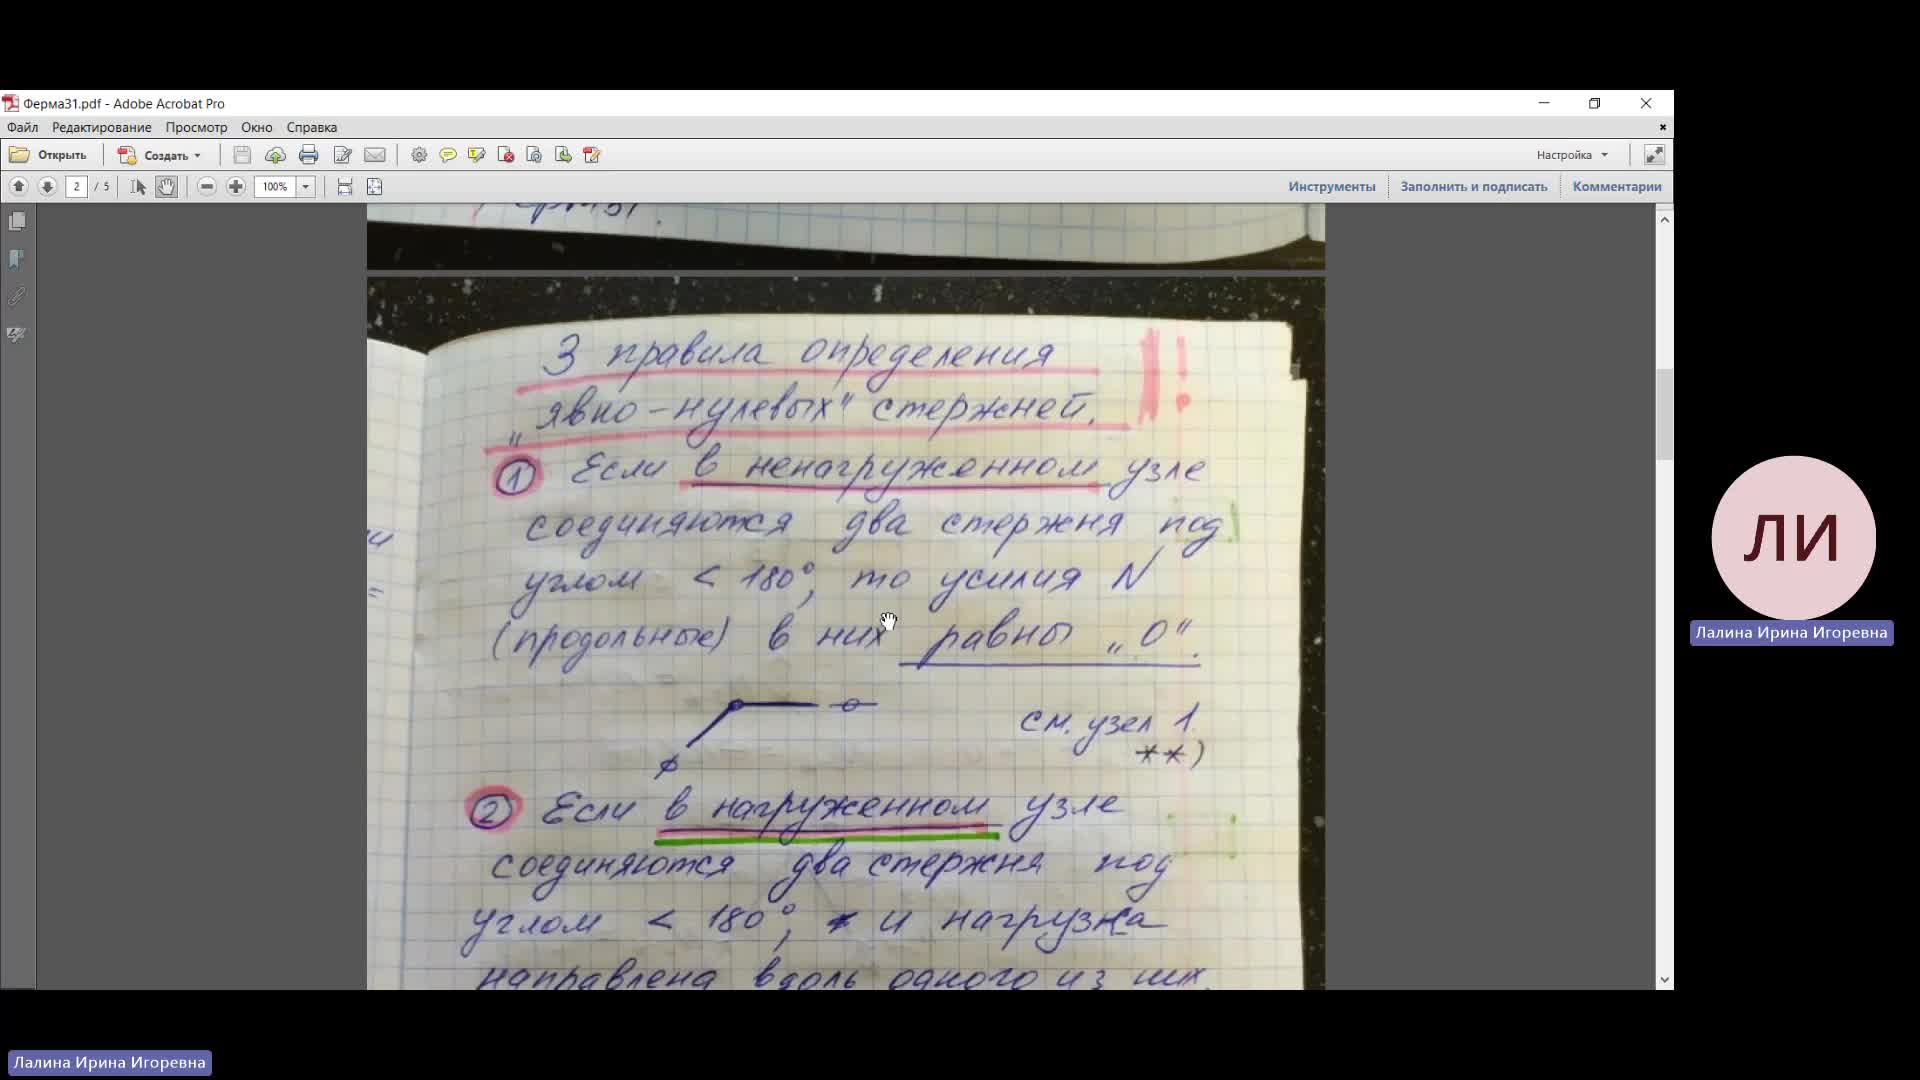 Ферма31.pdf - Adobe Acrobat Pro
Файл Редактирование Просмотр Окно Справка
Открыть Создать Настройка
2 / 5 100% Инструменты Заполнить и подписать Комментарии
3 правила определения
„явно-нулевых" стержней.
1 Если в ненагруженном узле
соединяются два стержня под
углом < 180°, то усилия N
(продольные) в них равны „0".
см. узел 1.
**)
2 Если в нагруженном узле
соединяются два стержня под
углом < 180°, и нагрузка
направлена вдоль одного из них,
ЛИ
Лалина Ирина Игоревна
Лалина Ирина Игоревна